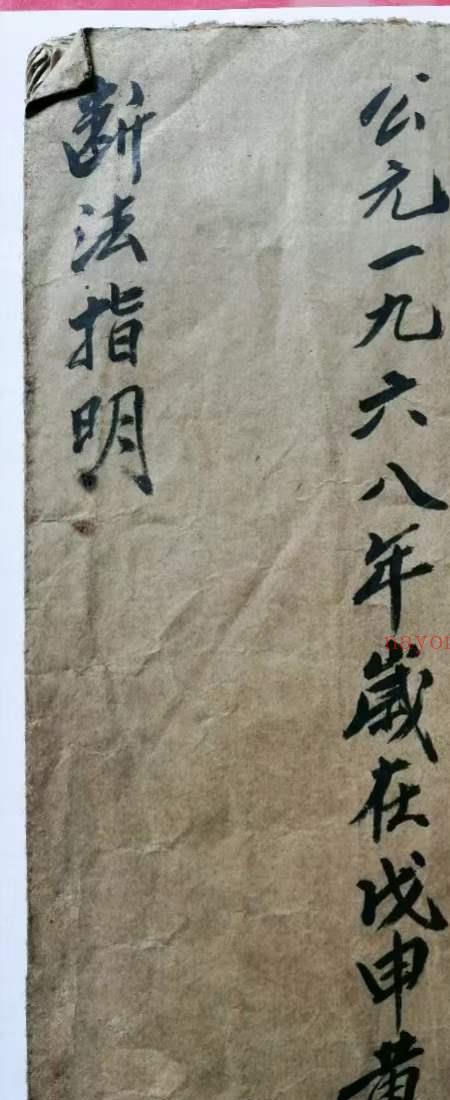 公元一九六八年歲在戊申黄
断法指明
nayon